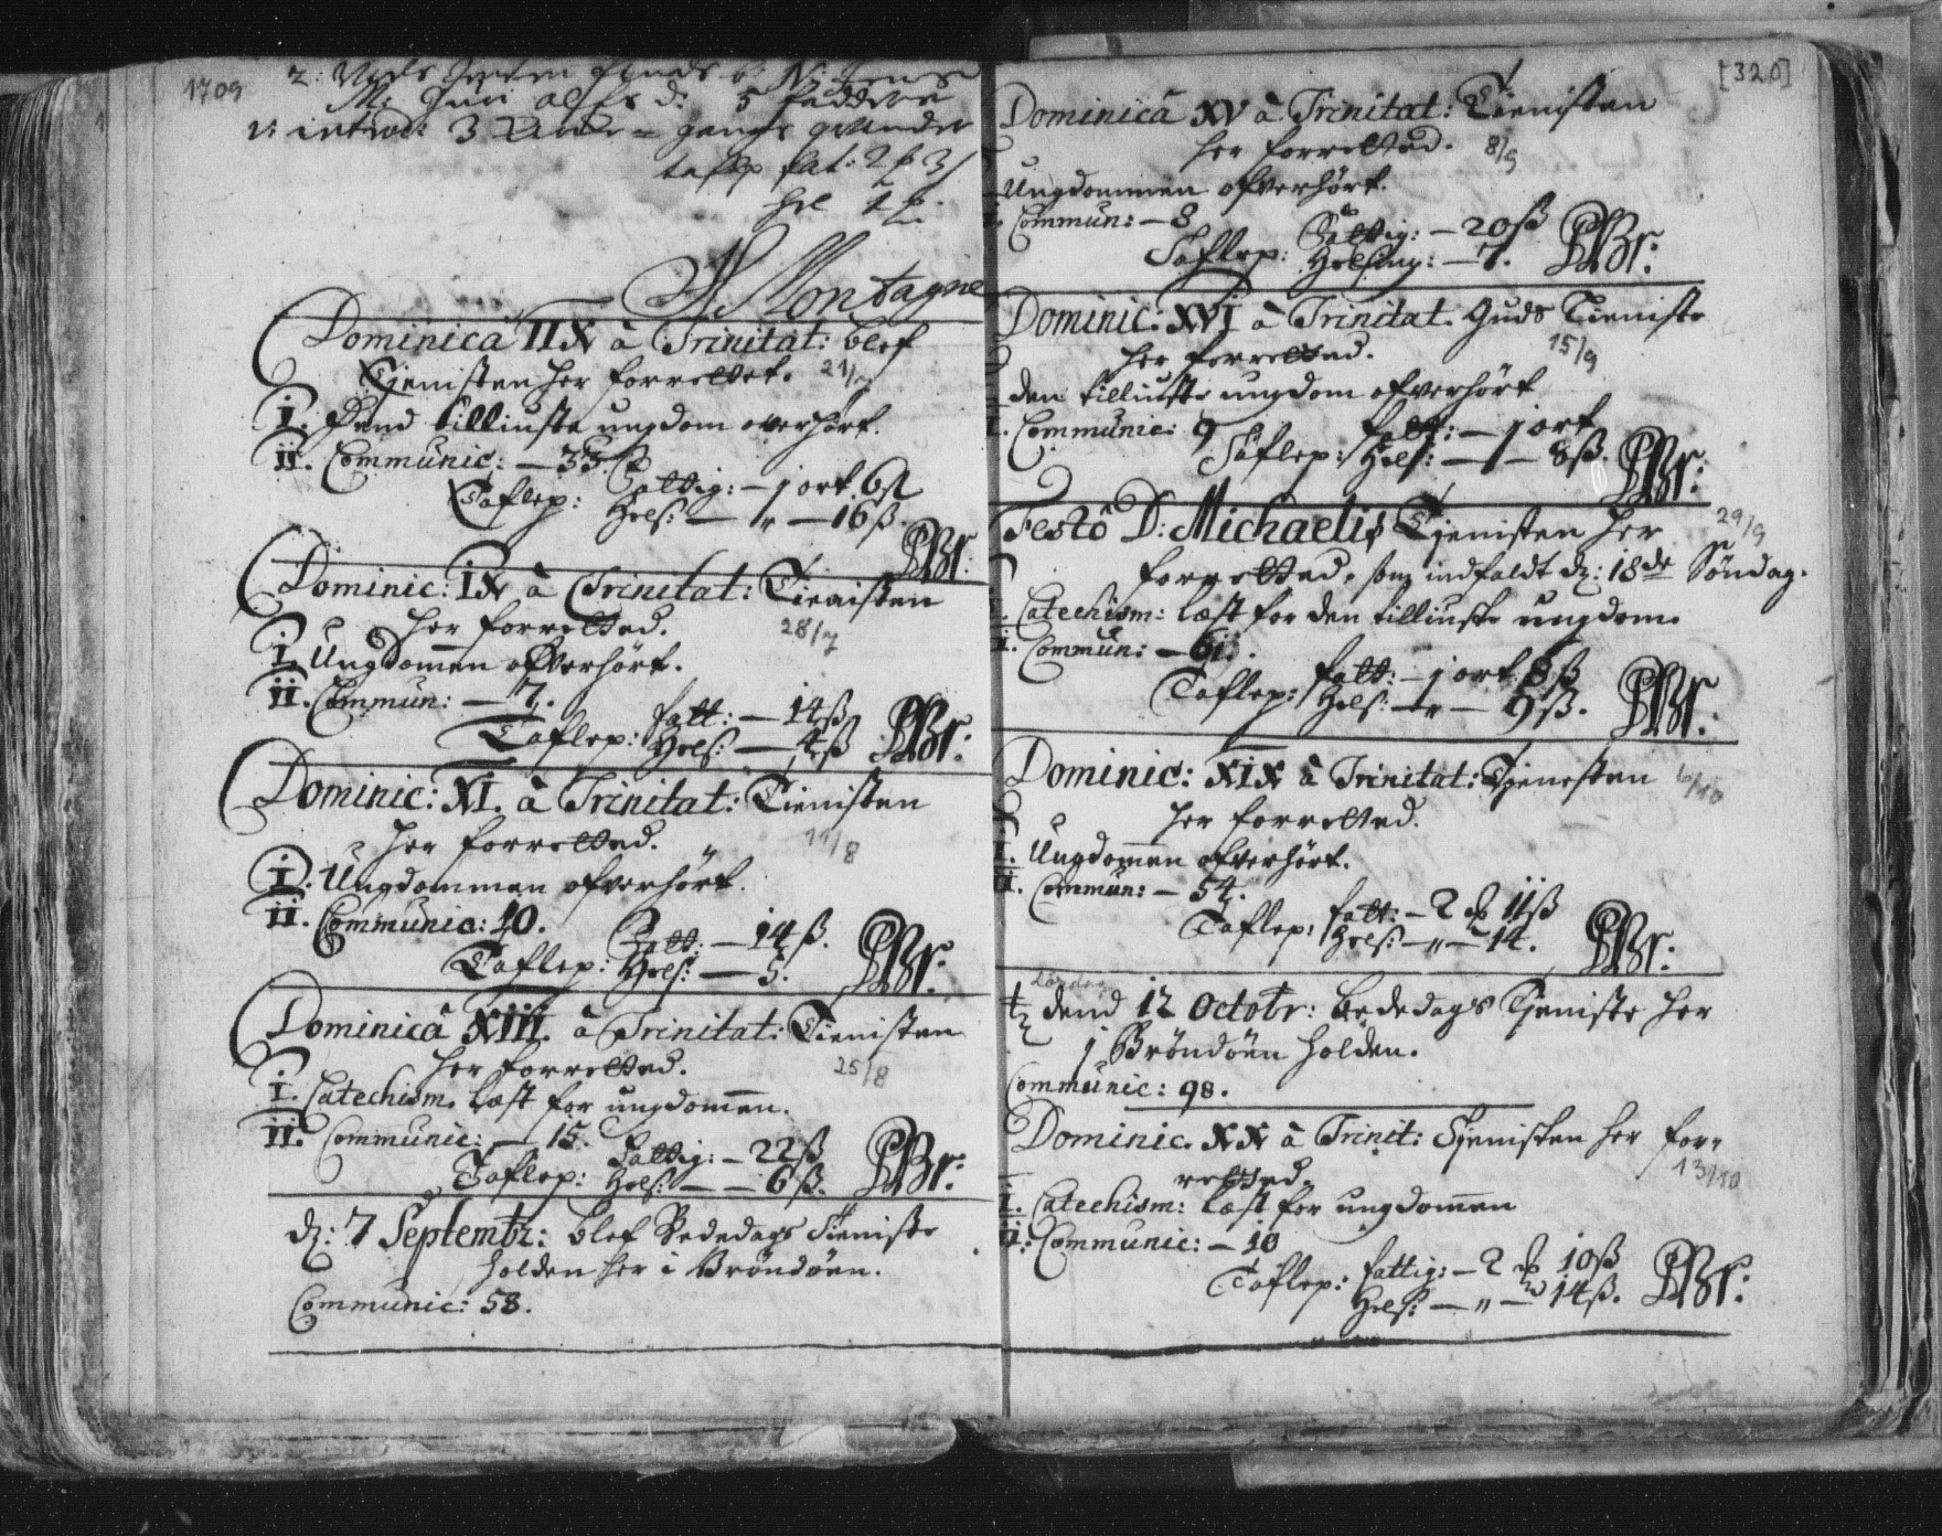 1709
2: Niels
M: 5 faddere
1: introd: 3 gangs qvinder
tafl p fat: 2 ß 3
Hel 1
Montagne
Dominica IIX à Trinitat: blef
Tjenisten her forrettet. 21/7
I. Dend tilliuste ungdom overhørt.
II. Communic: — 33.
Taflep: Fattig: — j ort 6 ß
Hels: — „ — 16 ß. PBr:
Dominic: IX à Trinitat: Tienisten
her forretted. 28/7
I. Ungdommen ofverhört.
II. Commun: — 7.
Taflep: fatt: — 14 ß
Hels: — 4 ß PBr:
Dominic: XI. à Trinitat: Tienisten
her forretted. 11/8
I. Ungdommen ofverhört.
II. Communic: 10.
Taflep: Fatt: — 14 ß.
Hels: — 5. PBr:
Dominicâ XIII. à Trinitat: Tienisten
her forretted. 25/8
I. Catechism. læst for ungdomen.
II. Communic: — 15.
Taflep: Fattig: — 22 ß
Hels: — — 6 ß. PBr:
d: 7 Septembr: blef Bededags Tieniste
holden her i Bröndöen.
Communic: 58.
[320]
Dominicâ XV à Trinitat: Tienisten
her forretted. 8/9
Ungdommen ofverhört.
Commun: — 8
Taflep: Fattig: — 20 ß
Helsing: — 7. PBr:
Dominic: XVI à Trinitat. Guds Tieniste
her forretted. 15/9
den tilliuste ungdom ofverhört
I. Communic: 9
Taflep: fatt: — j ort
Hels: — „ — 8 ß. PBr:
Festô D: Michaelis Tjenisten her 29/9
forretted, som indfaldt d: 18de Söndag.
I. Catechism: læst for den tilliuste ungdom.
II. Commun: — 61.
Taflep: fatt: — j ort 8 ß
Hels: — „ — 9 ß. PBr:
Dominic: XIX à Trinitat: Tjenesten 6/10
her forretted.
I. Ungdomen ofverhört.
II. Commun: — 54.
Taflep: fatt: — 2 11 ß
Hels: — „ — 14. PBr:
Lördag
dend 12 Octobr: Bededags Tjeniste her
j Bröndöen holden.
Communic: 98.
Dominic. XX à Trinit: Tjenisten her for-
retted. 13/10
I. Catechism: læst for ungdomen
II. Communic: — 10
Taflep: fattig: — 2 10 ß
Hels: — „ — 14 ß. PBr: